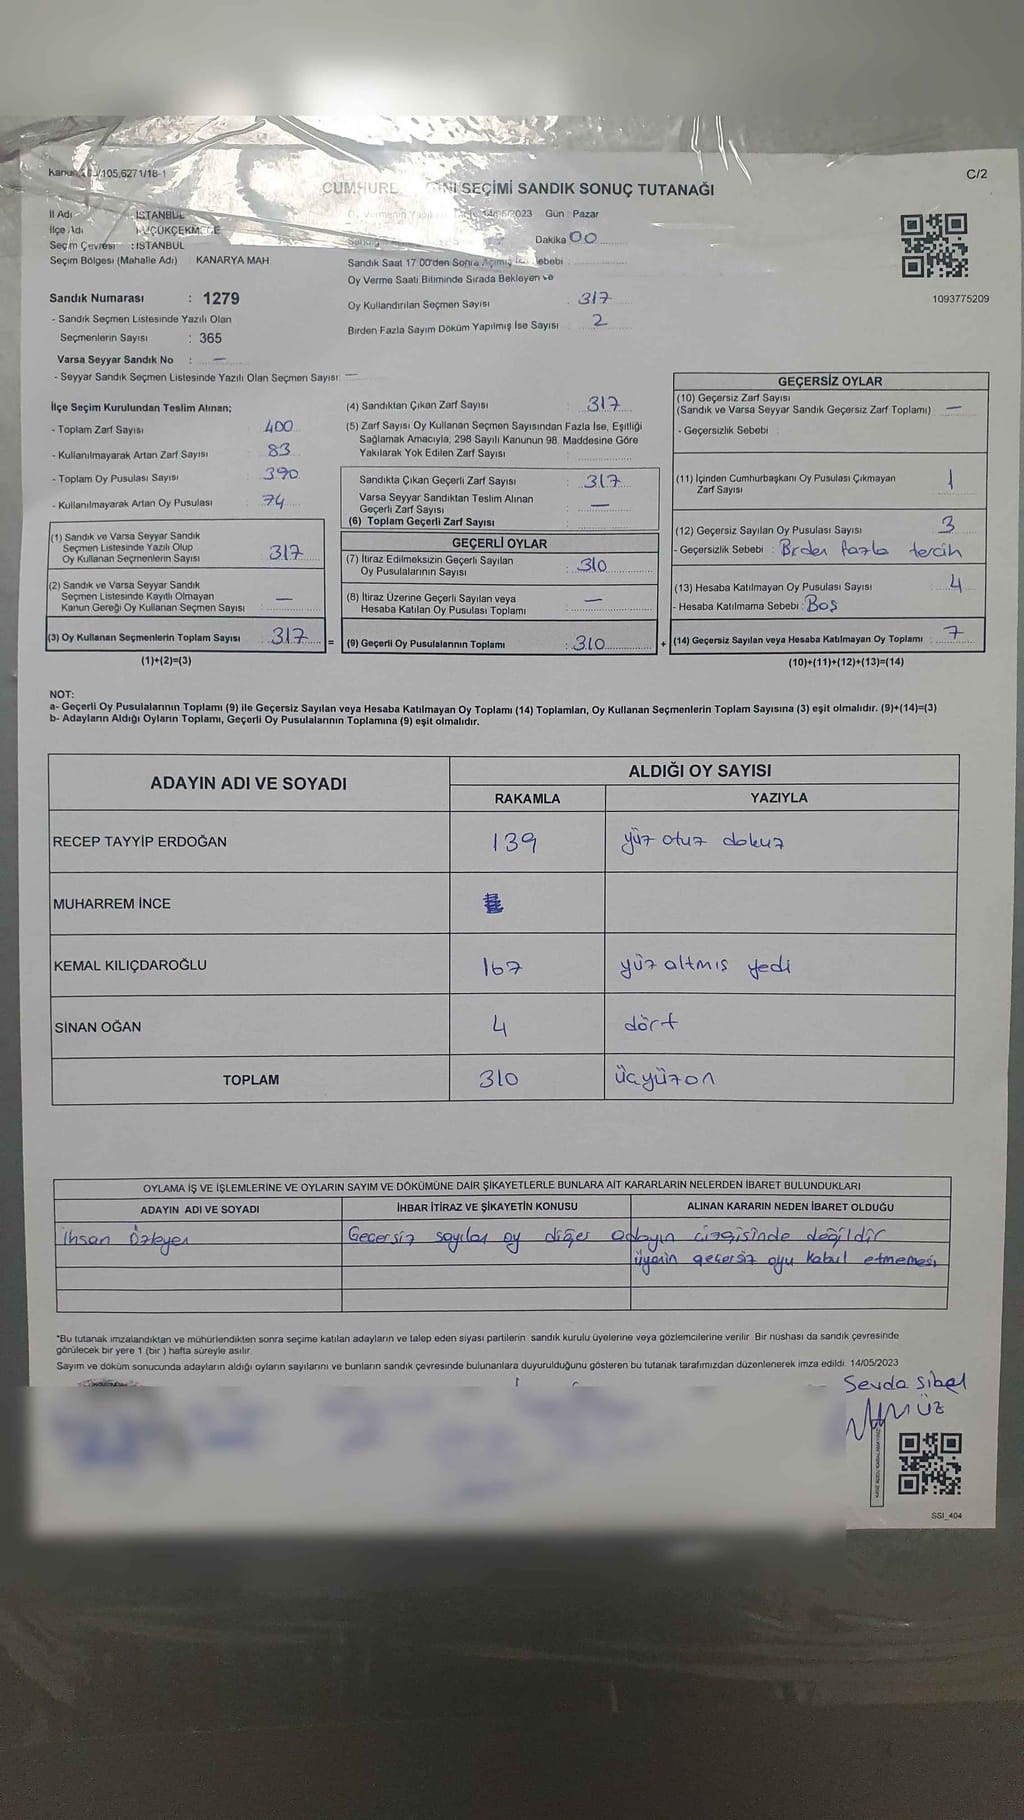 C/2
SEÇİMİ SANDIK SONUÇ TUTANAĞI
İl Adı : İSTANBUL
2023 Gün : Pazar
İlçe Adı
Dakika 00
Seçim Çevresi : İSTANBUL
Seçim Bölgesi (Mahalle Adı) KANARYA MAH.
Sandık Saat 17.00'den Sonra
Oy Verme Saati Bitiminde Sırada Bekleyen ve
Oy Kullandırılan Seçmen Sayısı : 317
Birden Fazla Sayım Döküm Yapılmış İse Sayısı : 2
1093775209
Sandık Numarası : 1279
- Sandık Seçmen Listesinde Yazılı Olan
Seçmenlerin Sayısı : 365
Varsa Seyyar Sandık No : —
- Seyyar Sandık Seçmen Listesinde Yazılı Olan Seçmen Sayısı: —
İlçe Seçim Kurulundan Teslim Alınan;
- Toplam Zarf Sayısı 400
- Kullanılmayarak Artan Zarf Sayısı 83
- Toplam Oy Pusulası Sayısı 390
- Kullanılmayarak Artan Oy Pusulası 74
(1) Sandık ve Varsa Seyyar Sandık
Seçmen Listesinde Yazılı Olup
Oy Kullanan Seçmenlerin Sayısı 317
(2) Sandık ve Varsa Seyyar Sandık
Seçmen Listesinde Kayıtlı Olmayan
Kanun Gereği Oy Kullanan Seçmen Sayısı —
(3) Oy Kullanan Seçmenlerin Toplam Sayısı 317 =
(1)+(2)=(3)
(4) Sandıktan Çıkan Zarf Sayısı : 317
(5) Zarf Sayısı Oy Kullanan Seçmen Sayısından Fazla İse, Eşitliği
Sağlamak Amacıyla, 298 Sayılı Kanunun 98. Maddesine Göre
Yakılarak Yok Edilen Zarf Sayısı
Sandıkta Çıkan Geçerli Zarf Sayısı : 317
Varsa Seyyar Sandıktan Teslim Alınan
Geçerli Zarf Sayısı : —
(6) Toplam Geçerli Zarf Sayısı :
GEÇERLİ OYLAR
(7) İtiraz Edilmeksizin Geçerli Sayılan
Oy Pusulalarının Sayısı : 310
(8) İtiraz Üzerine Geçerli Sayılan veya
Hesaba Katılan Oy Pusulası Toplamı : —
(9) Geçerli Oy Pusulalarının Toplamı : 310 +
GEÇERSİZ OYLAR
(10) Geçersiz Zarf Sayısı
(Sandık ve Varsa Seyyar Sandık Geçersiz Zarf Toplamı) —
- Geçersizlik Sebebi :
(11) İçinden Cumhurbaşkanı Oy Pusulası Çıkmayan
Zarf Sayısı 1
(12) Geçersiz Sayılan Oy Pusulası Sayısı 3
- Geçersizlik Sebebi : Birden fazla tercih
(13) Hesaba Katılmayan Oy Pusulası Sayısı : 4
- Hesaba Katılmama Sebebi : Boş
(14) Geçersiz Sayılan veya Hesaba Katılmayan Oy Toplamı : 7
(10)+(11)+(12)+(13)=(14)
NOT:
a- Geçerli Oy Pusulalarının Toplamı (9) ile Geçersiz Sayılan veya Hesaba Katılmayan Oy Toplamı (14) Toplamları, Oy Kullanan Seçmenlerin Toplam Sayısına (3) eşit olmalıdır. (9)+(14)=(3)
b- Adayların Aldığı Oyların Toplamı, Geçerli Oy Pusulalarının Toplamına (9) eşit olmalıdır.
ADAYIN ADI VE SOYADI
ALDIĞI OY SAYISI
RAKAMLA YAZIYLA
RECEP TAYYİP ERDOĞAN 139 yüz otuz dokuz
MUHARREM İNCE
KEMAL KILIÇDAROĞLU 167 yüz altmış yedi
SİNAN OĞAN 4 dört
TOPLAM 310 üçyüzon
OYLAMA İŞ VE İŞLEMLERİNE VE OYLARIN SAYIM VE DÖKÜMÜNE DAİR ŞİKAYETLERLE BUNLARA AİT KARARLARIN NELERDEN İBARET BULUNDUKLARI
ADAYIN ADI VE SOYADI İHBAR İTİRAZ VE ŞİKAYETİN KONUSU ALINAN KARARIN NEDEN İBARET OLDUĞU
İhsan Geçersiz sayılan oy diğer adayın çizgisinde değildir
üyenin geçersiz oyu kabul etmemesi
*Bu tutanak imzalandıktan ve mühürlendikten sonra seçime katılan adayların ve talep eden siyasi partilerin sandık kurulu üyelerine veya gözlemcilerine verilir. Bir nüshası da sandık çevresinde
görülecek bir yere 1 (bir ) hafta süreyle asılır.
Sayım ve döküm sonucunda adayların aldığı oyların sayılarını ve bunların sandık çevresinde bulunanlara duyurulduğunu gösteren bu tutanak tarafımızdan düzenlenerek imza edildi. 14/05/2023
Sevda Sibel
SSI_404